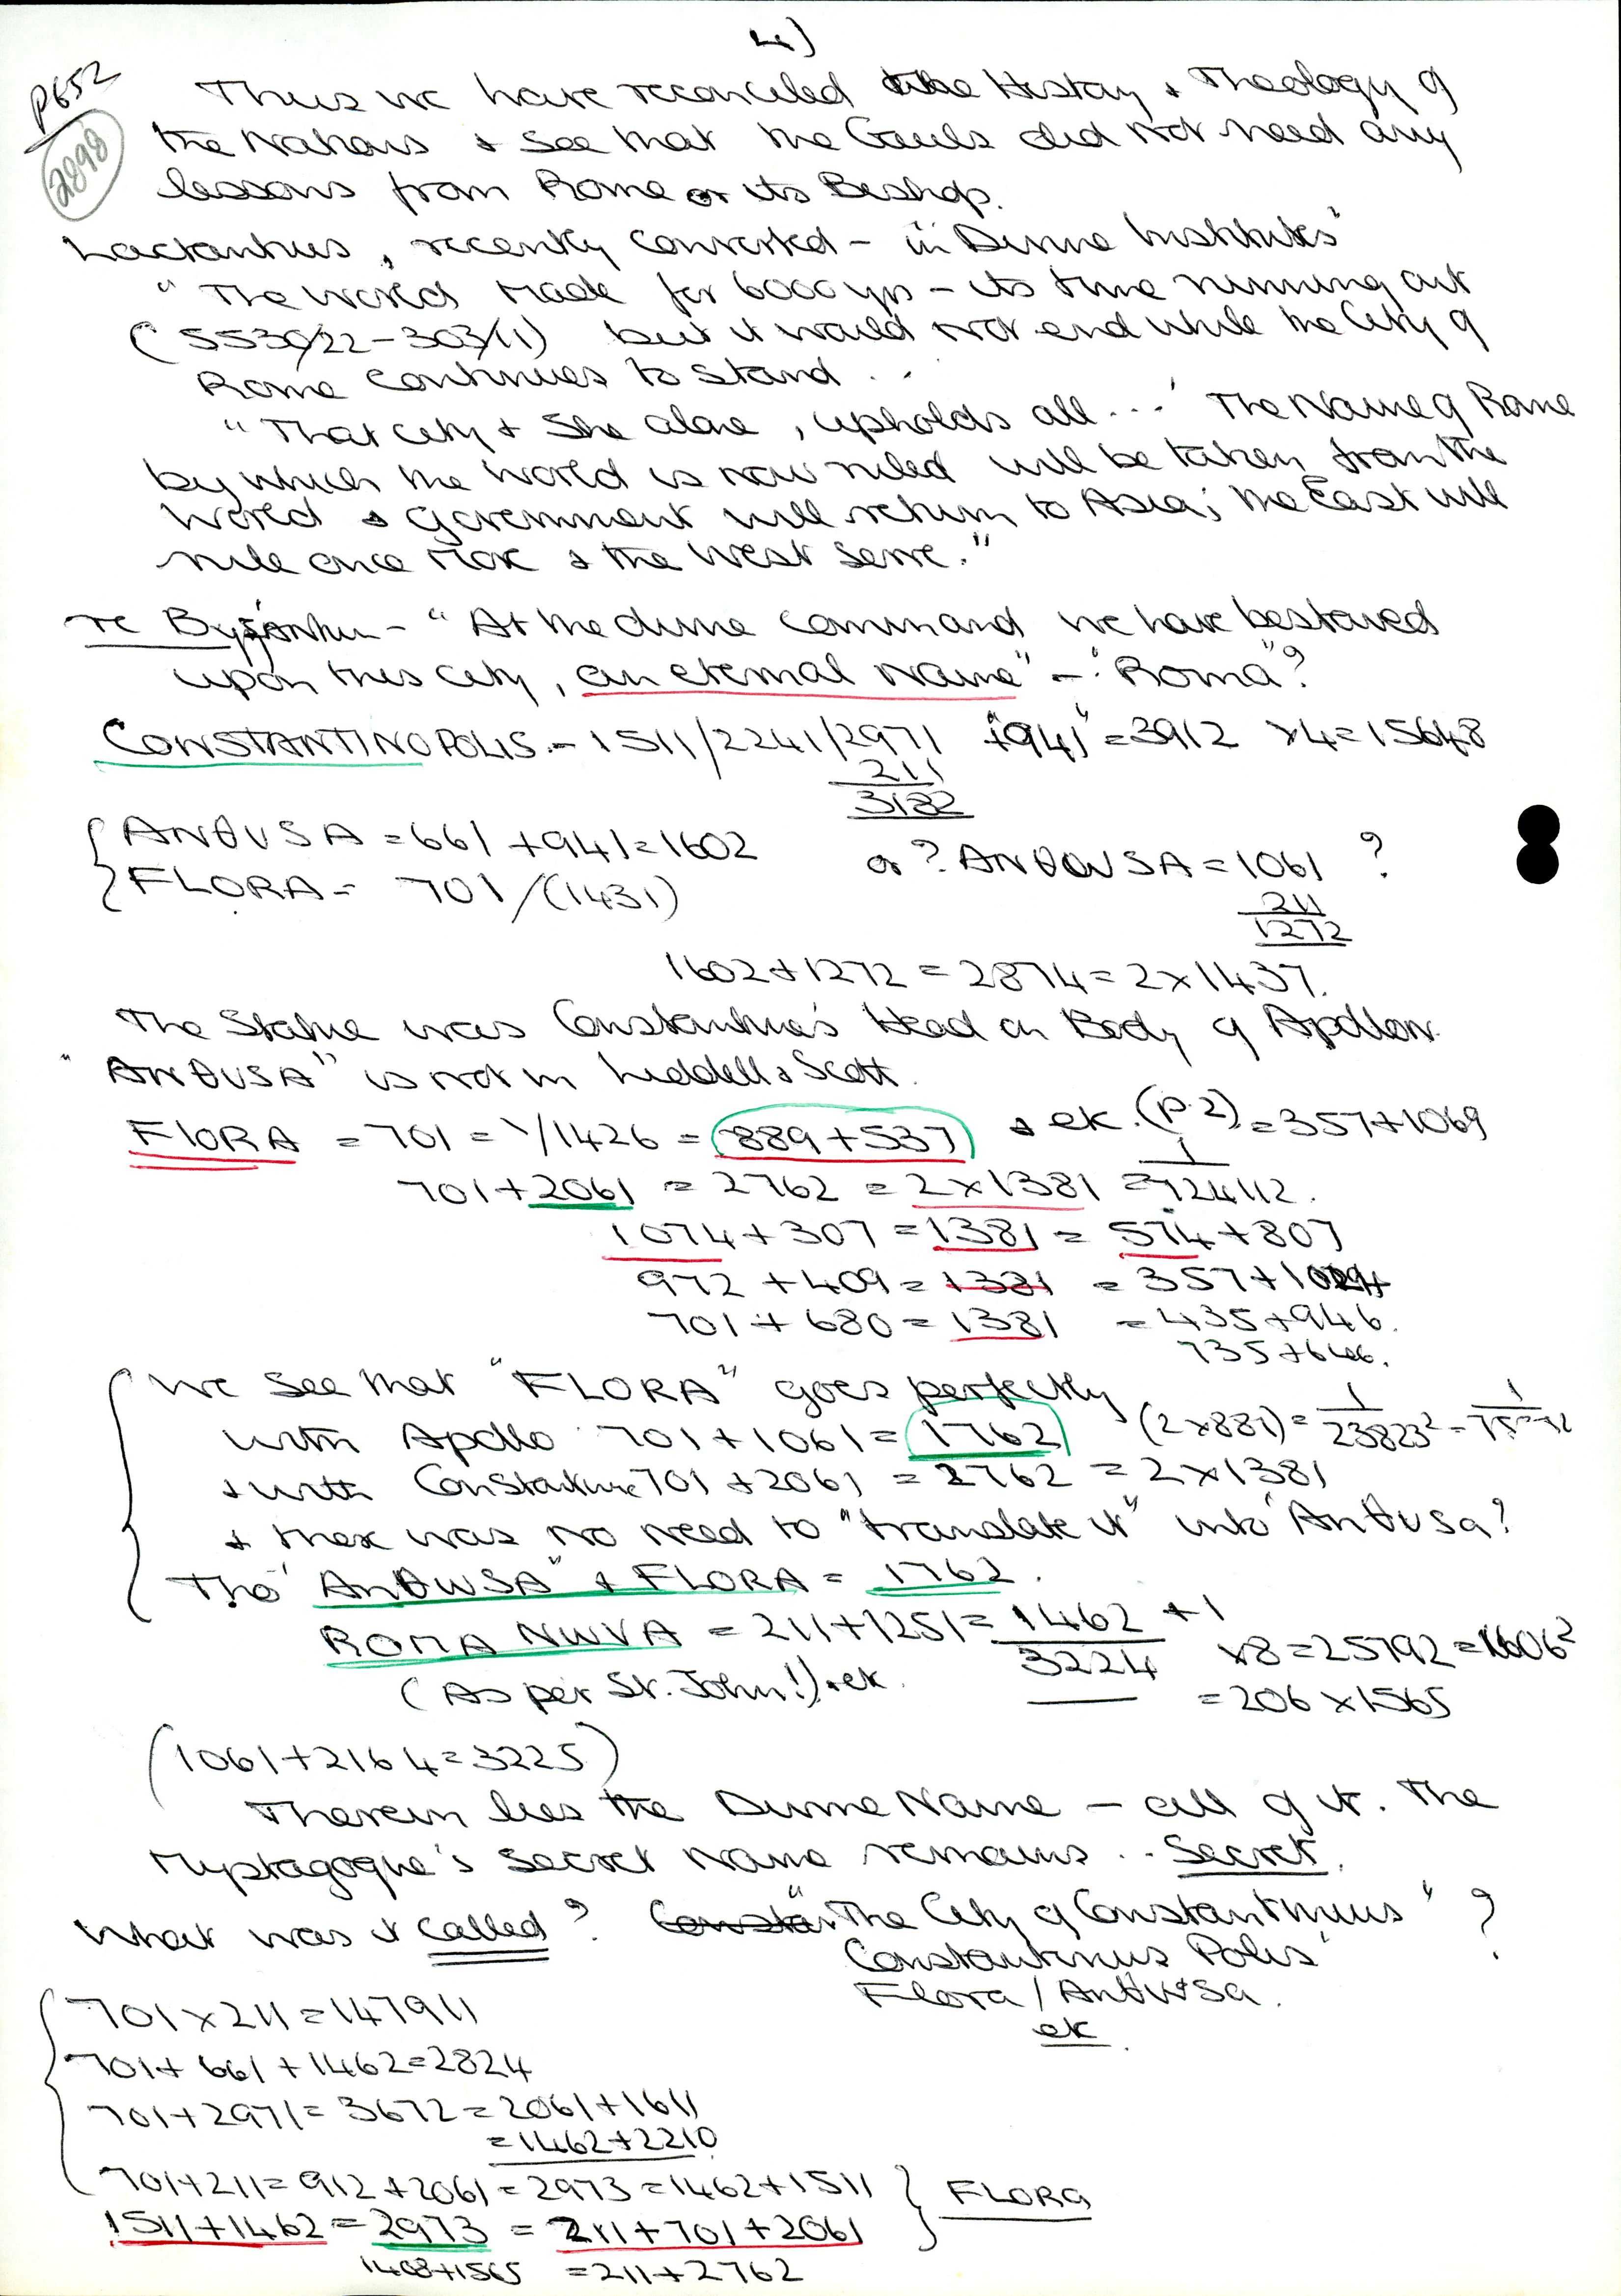 4)
P652
2898
Thus we have reconciled the History & Theology of
the Nations & see that the Gauls did not need any
lessons from Rome or its Bishop.
Lactantius, recently converted – in "Divine Institutes"
"The World made for 6000 yrs – its time running out
(5530/22 – 303/11) but it would not end while the City of
Rome continues to stand . .
"That city & She alone, upholds all ...' The Name of Rome
by which the World is now ruled will be taken from the
World & government will return to Asia; the East will
rule once more & the West serve."
re Byzantium – "At the divine command we have bestowed
upon this city, an eternal Name" – "Roma"?
CONSTANTINOPOLIS. – 1511/2241/2971 +"941" = 3912 x4 = 15648
211
3182
{ ANθVSA = 661 + 941 = 1602 or? ANθOVSA = 1061 ?
FLORA = 701/(1431) 211
1272
1602 + 1272 = 2874 = 2 x 1437.
The Statue was Constantine's Head on Body of Apollon.
"ANθVSA" is not in Liddell & Scott.
FLORA = 701 = 1/1426 = 889 + 537 & ek. (p.2) = 357 + 1069
701 + 2061 = 2762 = 2 x 1381 = 1/724112.
1074 + 307 = 1381 = 574 + 807
972 + 409 = 1381 = 357 + 1024
701 + 680 = 1381 = 435 + 946.
735 + 646.
We see that "FLORA" goes perfectly
with Apollo 701 + 1061 = 1762 (2 x 881) = 1/23823²
& with Constantine 701 + 2061 = 2762 = 2 x 1381
& there was no need to "translate it" into Anθvsa?
Tho' "ANθWSA" & FLORA = 1762.
ROMA NWVA = 211 + 1251 = 1462 + 1
3224 x8 = 25792 = 1606²
(As per St. John!) & ek. = 206 x 1565
(1061 + 2164 = 3225)
Therein lies the Divine Name – all of it. The
Mystagogue's Secret Name remains . . Secret.
What was it called? "The City of Constantinus" ?
Constantinus Polis'
Flora / Anθusa.
ek
701 x 211 = 147911
701 + 661 + 1462 = 2824
701 + 2971 = 3672 = 2061 + 1611
= 1462 + 2210
701 + 211 = 912 + 2061 = 2973 = 1462 + 1511 } FLORA
1511 + 1462 = 2973 = 211 + 701 + 2061
1408 + 1565 = 211 + 2762